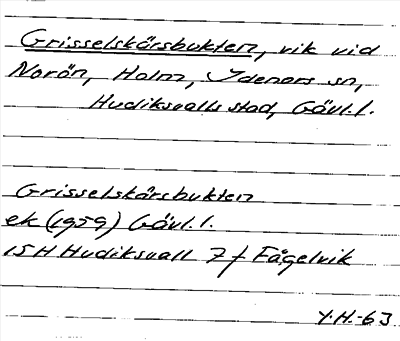 Grisselskärsbukten, vik vid
Norön, Holm, Idenors sn,
Hudiksvalls stad, Gävl.l.
Grisselskärsbukten
ek (1959) Gävl.l.
15H Hudiksvall 7f Fågelvik
Y.H.-63